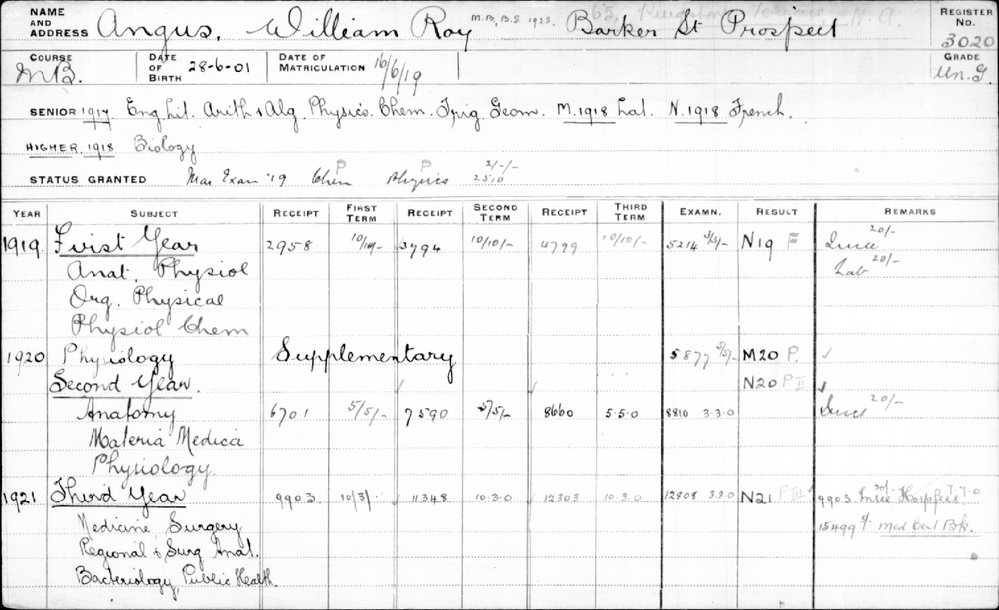 NAME AND ADDRESS Angus, William Roy M.B, B.S 1923. 63, Kingston Terrace, N.A. Barker St Prospect REGISTER No. 3020
COURSE M.B. DATE OF BIRTH 28-6-01 DATE OF MATRICULATION 16/6/19 GRADE Un.G.
SENIOR 1917 Eng Lit. Arith & Alg. Physics. Chem. Trig. Geom. M.1918 Lat. N.1918 French.
HIGHER 1918 Biology
STATUS GRANTED Mar Exam '19 Chem P Physics P 2/-/- 2510
YEAR SUBJECT RECEIPT FIRST TERM RECEIPT SECOND TERM RECEIPT THIRD TERM EXAMN. RESULT REMARKS
1919 First Year 2958 10/10/- 3794 10/10/- 4799 10/10/- 5214 3/3/- N19 F 20/-
Anat. Physiol Lab 20/-
Org. Physical
Physiol Chem
1920 Physiology Supplementary 5877 5/5/- M20 P. ✓
Second Year. N20 P II ✓
Anatomy 6701 5/5/- 7590 5/5/- 8660 5.5.0 8810 3.3.0 20/-
Materia Medica
Physiology.
1921 Third Year 9903. 10/3/- 11348 10.3.0 12303 10.3.0 12808 3.3.0 N21 P III 9903. 20/- 7.7.0
Medicine, Surgery 15499 5/- Med Cert Bk.
Regional & Surg Anat.
Bacteriology, Public Health.